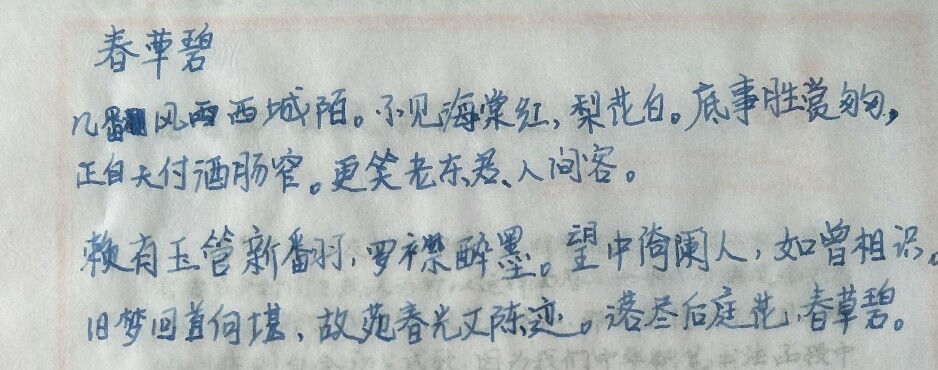 春草碧
几番风雨西城陌。不见海棠红,梨花白。底事胜赏匆匆,
正自天付酒肠窄。更笑老东君、人间客。
赖有玉管新翻,罗襟醉墨。望中倚阑人,如曾相识。
旧梦回首何堪,故苑春光又陈迹。落尽后庭花,春草碧。